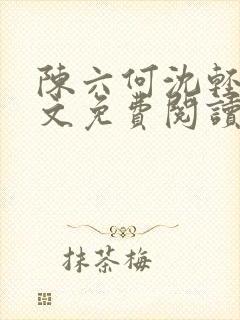 陳六何沈輕
文免費閱讀
抹茶梅